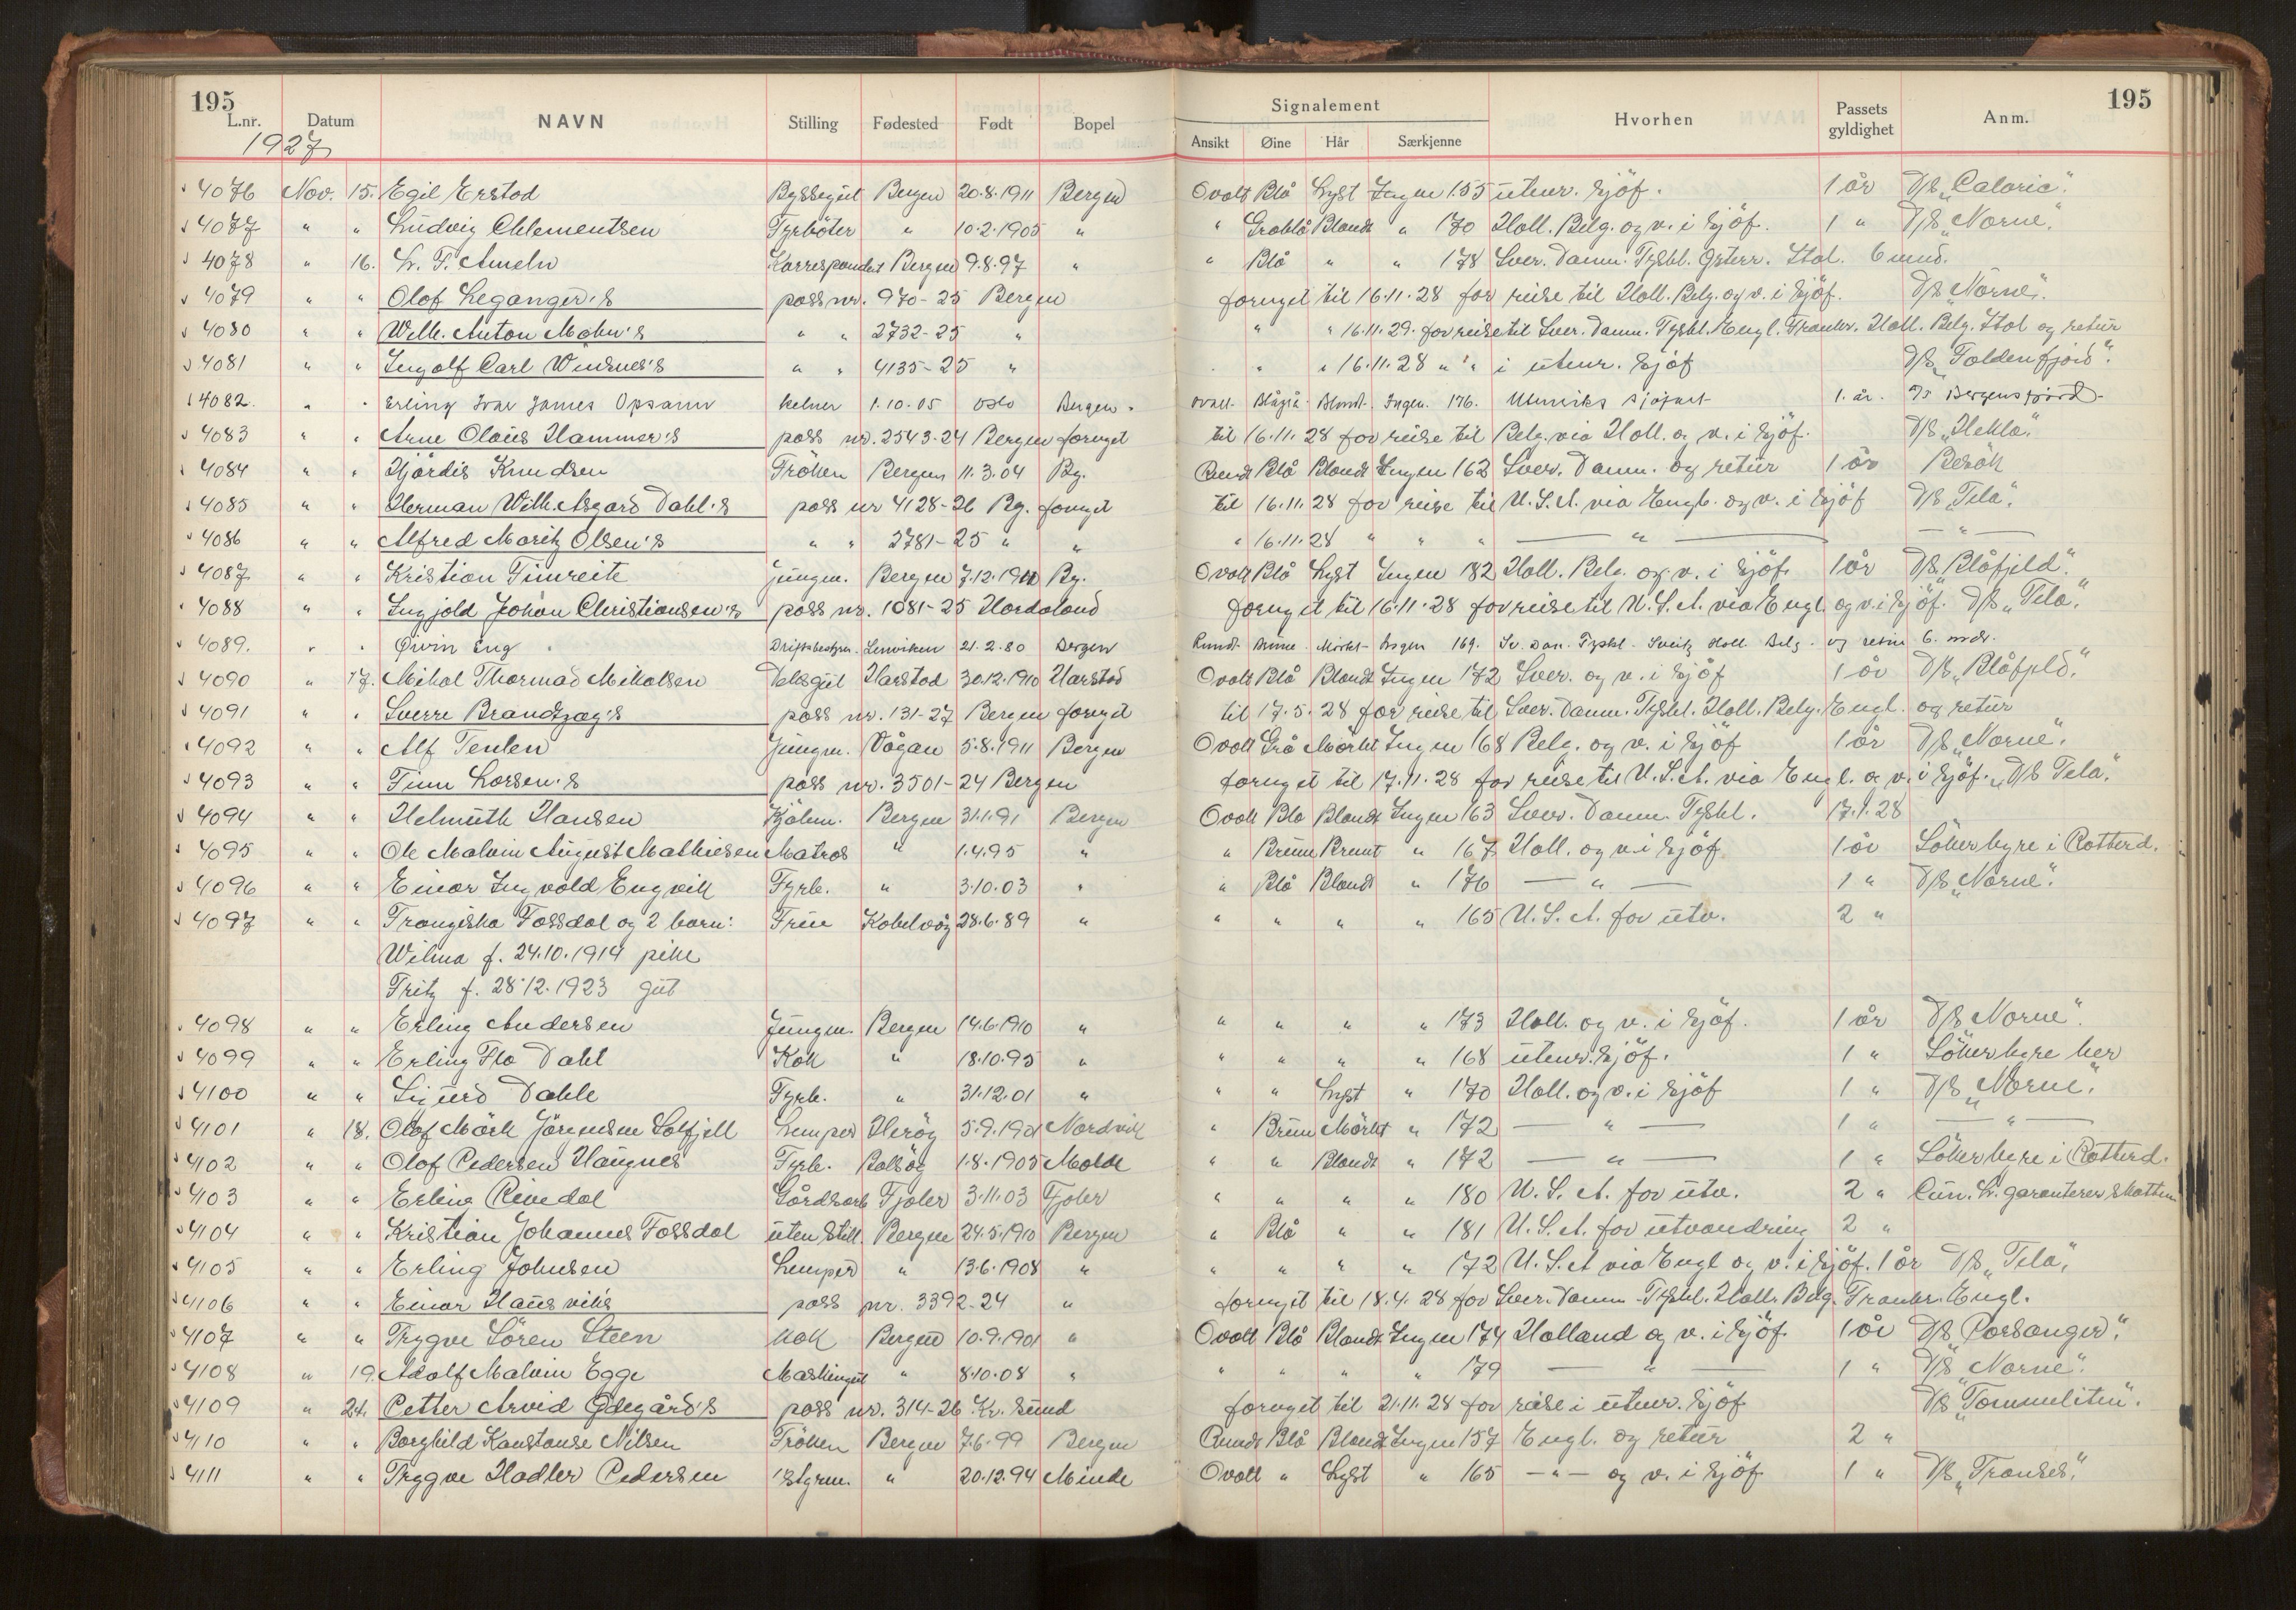 195 195
Signalement
L.nr. Datum NAVN Stilling Fødested Født Bopel Ansikt Øine Hår Særkjenne Hvorhen Passets gyldighet Anm.
1927
4076 Nov. 15. Egil Erstad Byssegut Bergen 20.8.1911 Bergen Ovalt Blå Lyst Ingen 155 utenr. sjöf. 1 år D/S „Calaria".
4077 " " Ludvig Chlementsen Fyrböter " 10.2.1905 " " Gråblå Blondt " 170 Holl. Belg. og v. i sjöf. 1 " D/S „Norne".
4078 " 16. L. F. Ameln Korrespondent Bergen 9.8.97 " " Blå " " 178 Sver. Danm. Tyskl. Østerr. Ital. 6 mnd.
4079 " " Olaf Leganger's pass nr. 970-25 Bergen fornyet til 16.11.28 for reise til Holl. Belg. og v. i sjöf. D/S „Norne".
4080 " " Wilh. Anton Mohn's " " 2732-25 " " " 16.11.29. for reise til Sver. Danm. Tyskl. Engl. Frankr. Holl. Belg. Ital og retur
4081 " " Ingolf Carl Windsnes's " " 4135-25 " " " 16.11.28 " " i utenr. sjöf D/S „Foldenfjord".
4082. " " Erling Ivar James Opsann kelner 1.10.05 Oslo Bergen. ovalt. Blågrå. Blondt. Ingen. 176. Utenriks sjöfart 1. år. D/S Bergensfjord.
4083 " " Arne Olaus Hammer's pass nr. 2543-24 Bergen fornyet til 16.11.28 for reise til Belg. via Holl. og v. i sjöf. D/S „Hekla".
4084 " " Hjördis Knudsen Fröken Bergen 11.3.04 Bg. Rundt Blå Blondt Ingen 162 Sver. Danm. og retur 1 år Besök
4085 " " Herman Wilh. Asgard Dahl's pass nr 4128-26 Bg. fornyet til 16.11.28 for reise til U.S.A. via Engl. og v. i sjöf D/S „Tela".
4086 " " Alfred Moritz Olsen's " " 2781-25 " " " 16.11.28 " " " — " — — " —
4087 " " Kristian Timreite Jungm. Bergen 7.12.1911 Bg. Ovalt Blå Lyst Ingen 182 Holl. Belg. og v. i sjöf. 1 år D/S „Blåfjeld".
4088 " " Ingjold Johan Christiansen's pass nr. 1081-25 Hordaland fornyet til 16.11.28 for reise til U.S.A. via Engl. og v. i sjöf. D/S „Tela".
4089. " " Øivin Eng Driftsbestyrer. Lenviken 21.2.80 Bergen Rundt. Brune. Mörkt. Ingen 169. Sv. Dan. Tyskl. Sveitz Holl. Belg. og retur 6. mdr.
4090 " 17. Mikal Thormod Mikalsen Dekgut Harstad 30.12.1910 Harstad Ovalt Blå Blondt Ingen 172 Sver. og v. i sjöf 1 år D/S „Blåfjeld".
4091 " " Sverre Brandtzæg's pass nr. 131-27 Bergen fornyet til 17.5.28 for reise til Sver. Danm. Tyskl. Holl. Belg. Engl. og retur
4092 " " Alf Tenlen Jungm. Vågan 5.8.1911 Bergen Ovalt Grå Mörkt Ingen 168 Belg. og v. i sjöf 1 år D/S „Norne".
4093 " " Finn Larsen's pass nr. 3501-24 Bergen fornyet til 17.11.28 for reise til U.S.A. via Engl. og v. i sjöf. D/S „Tela".
4094 " " Helmuth Hansen Kjöbm. Bergen 31.1.91 Bergen Ovalt Blå Blondt Ingen 163 Sver. Danm. Tyskl. 17.1.28
4095 " " Ole Malvin August Mathiesen Matros " 1.4.95 " " Brune Brunt " 167 Holl. og v. i sjöf 1 år Söker hyre i Rotterd.
4096 " " Einar Ingvald Engvik Fyrb. " 3.10.03 " " Blå Blondt " 176 — " — 1 " D/S „Norne".
4097 " " Frangiska Fossdal og 2 barn: Frue Kobelvåg 28.6.89 " " " " " 165 U.S.A. for utv. 2 "
Wilma f. 24.10.1914 pike
Fritz f. 28.12.1923 gut
4098 " " Erling Andersen Jungm. Bergen 14.6.1910 " " " " " 173 Holl. og v. i sjöf. 1 år D/S „Norne".
4099 " " Erling Flo Dahl Kok " 18.10.95 " " " " " 168 utenr. sjöf. 1 " Söker hyre her
4100 " " Sigurd Dahle Fyrb. " 31.12.01 " " " Lyst " 170 Holl. og v. i sjöf 1 " D/S „Norne".
4101 " 18. Olaf Mörk Jörgensen Solfjell Lemper Heröy 5.9.1901 Nordvik " Brune Mörkt " 172 — " — 1 " — " —
4102 " " Olaf Pedersen Haugnes Fyrb. Bolsöy 1.8.1905 Molde " " Blondt " 172 — " — 1 " Söker hyre i Rotterd.
4103 " " Erling Rivedal Gårdsarb Fjaler 3.11.03 Fjaler " " " " 180 U.S.A. for utv. 2 " Cun. L. garanterer skatten
4104 " " Kristian Johannes Fossdal uten still. Bergen 24.5.1910 Bergen " Blå " " 181 U.S.A. for utvandring 2 "
4105 " " Erling Johnsen Lemper " 13.6.1908 " " " " " 172 U.S.A via Engl og v. i sjöf. 1 år D/S „Tela".
4106 " " Einar Hausvik's pass nr. 3392-24 " fornyet til 18.4.28 for Sver. Danm. Tyskl. Holl. Belg. Frankr. Engl.
4107 " " Trygve Sören Steen Kok Bergen 10.9.1901 " Ovalt Blå Blondt Ingen 174 Holland og v. i sjöf. 1 år D/S „Porsanger".
4108 " 19. Adolf Malvin Egge Maskingut " 8.10.08 " " " " " 179 — " — 1 " D/S „Norne".
4109 " 21. Petter Arvid Ødegård's pass nr. 314-26 Kr.sund fornyet til 21.11.28 for reise i utenr. sjöf D/S „Tommeliten".
4110 " " Borghild Konstanse Nilsen Fröken Bergen 7.6.99 Bergen Rundt Blå Blondt Ingen 157 Engl. og retur 2 "
4111 " " Trygve Hadler Pedersen 1 styrm. " 20.12.94 Minde Ovalt " Lyst " 165 — " — og v. i sjöf 1 " D/S „Transes".